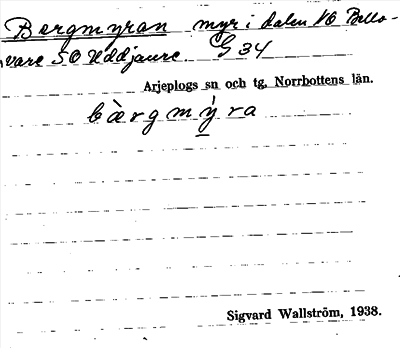 Bergmyran myr i dalen NO Bello-
vare SO Uddjaure. G 34
Arjeplogs sn och tg, Norrbottens län.
bàrgmỳra
Sigvard Wallström, 1938.